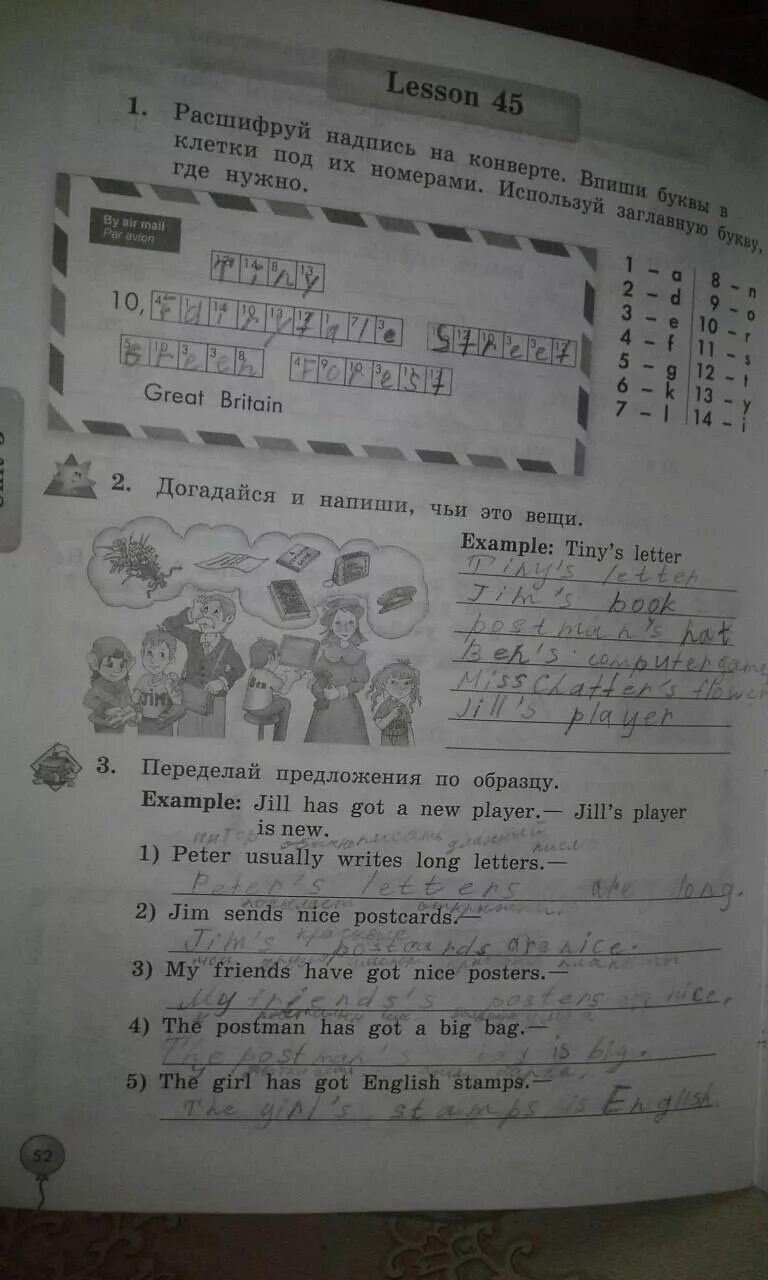 Lesson 45
1. Расшифруй надпись на конверте. Впиши буквы в
клетки под их номерами. Используй заглавную букву,
где нужно.
By air mail
Par avion
12 14 8 13
Tiny
10, Fairytale
Street
Green Forest
Great Britain
1 – a 8 – n
2 – d 9 – o
3 – e 10 – r
4 – f 11 – s
5 – g 12 – t
6 – k 13 – y
7 – l 14 – i
2. Догадайся и напиши, чьи это вещи.
Example: Tiny's letter
Tiny's letter
Jim's book
postman's hat
Ben's computer game
Miss Chatter's flower
Jill's player
JIM
Ben
3. Переделай предложения по образцу.
Example: Jill has got a new player.— Jill's player
is new.
питер обычно писать длинный писм
1) Peter usually writes long letters.—
Peter's letters are long.
посылает открытки.
2) Jim sends nice postcards.—
красивые
Jim's postcards are nice.
3) My friends have got nice posters.—
My friends's posters are nice.
4) The postman has got a big bag.—
The postman's bag is big.
5) The girl has got English stamps.—
The girl's stamps is English.
52